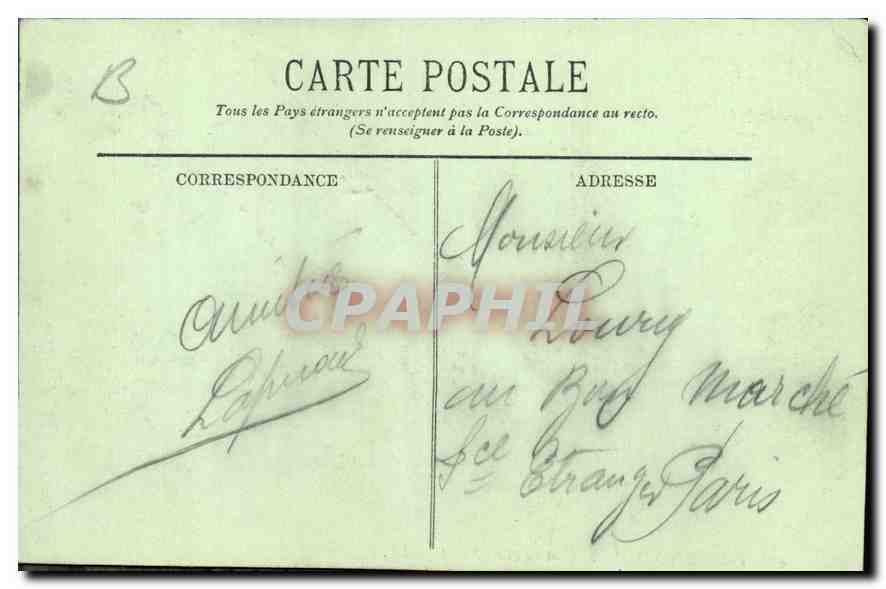 B
CARTE POSTALE
Tous les Pays étrangers n'acceptent pas la Correspondance au recto.
(Se renseigner à la Poste).
CORRESPONDANCE
ADRESSE
Monsieur
au Bon Marché
Sce Etranger Paris
Amitié
CPAPHIL